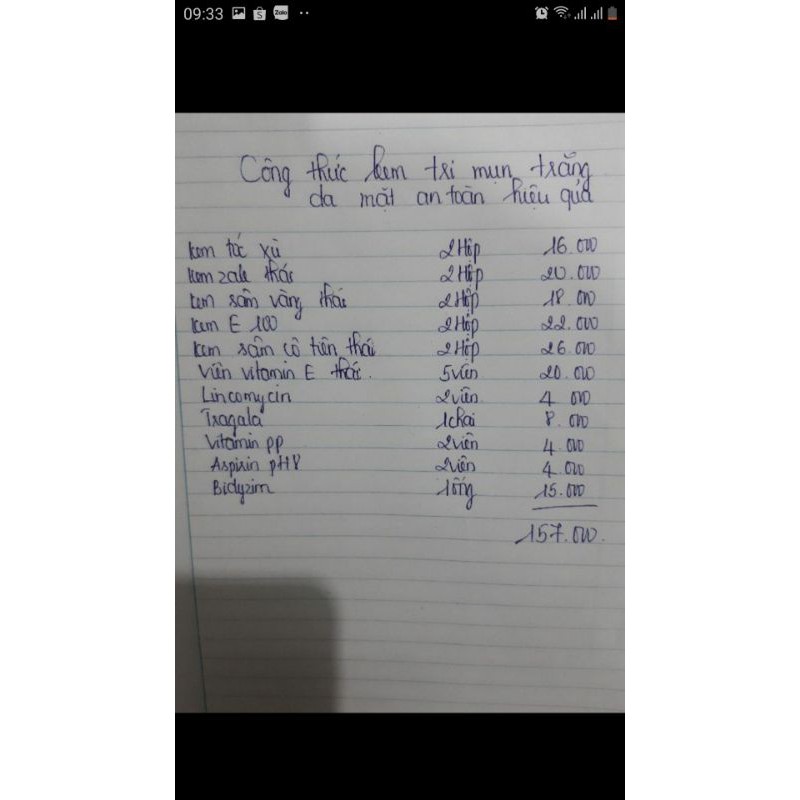 09:33
Công thức kem trị mụn trắng
da mặt an toàn hiệu quả
kem tóc xù 2 Hộp 16.000
kem zale thái 2 Hộp 20.000
kem sâm vàng thái 2 Hộp 18.000
kem E 100 2 Hộp 22.000
kem sâm cô tiên thái 2 Hộp 26.000
Viên vitamin E thái. 5 viên 20.000
Lincomycin 2 viên 4 000
Tragala 1 chai 8.000
Vitamin pp 2 viên 4.000
Aspirin pH8 2 viên 4.000
Bidyzim 1 ống 15.000
157.000.